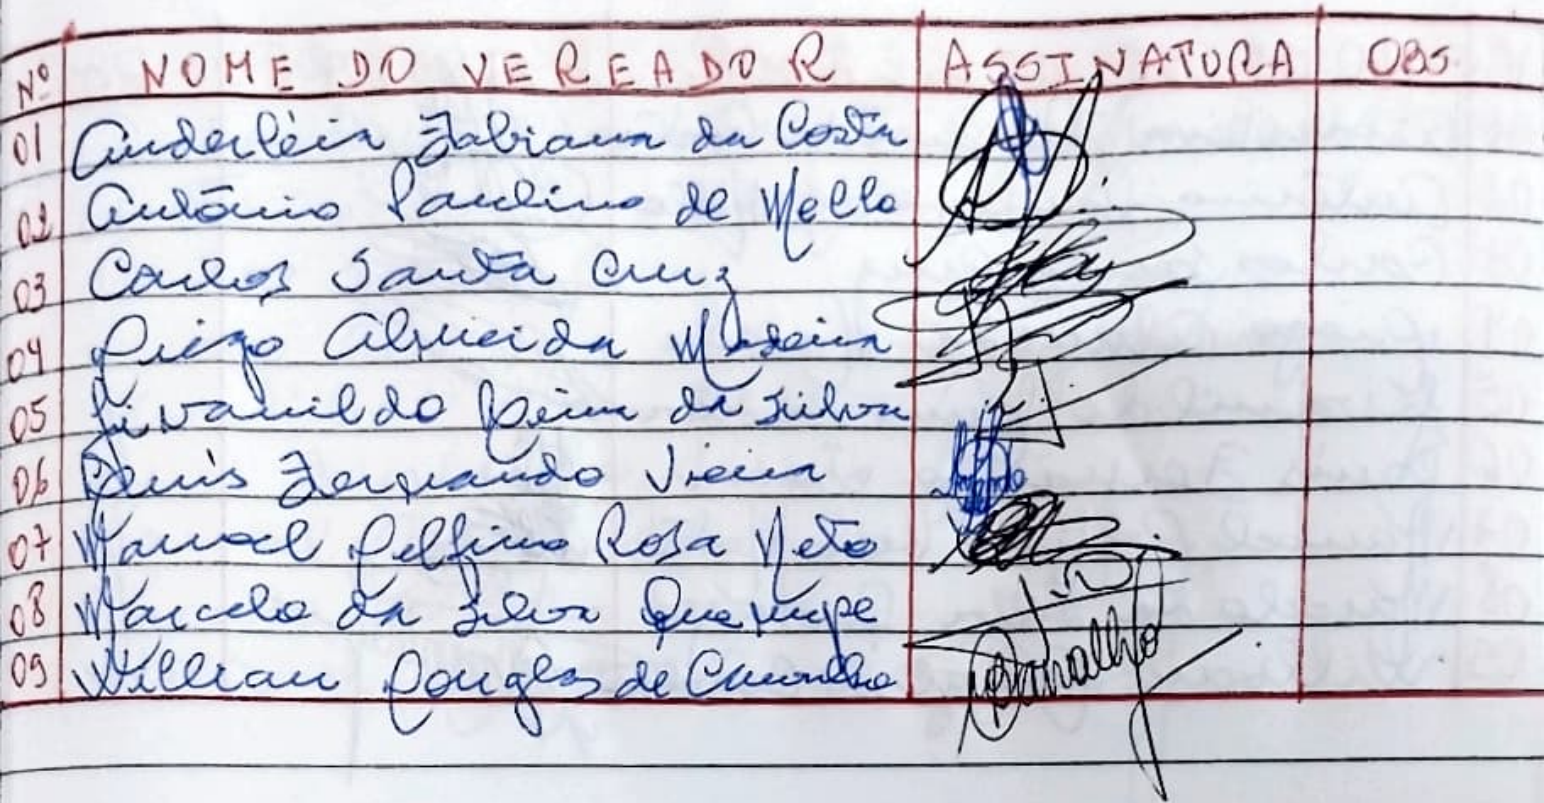 Nº NOME DO VEREADOR ASSINATURA OBS.
01 Anderléia Fabiana da Costa
02 Antônio Paulino de Mello
03 Carlos Santa Cruz
04 Diego Almeida Madeira
05 Givanildo da Silva
06 Denis Fernando Vieira
07 Manoel Delfino Rosa Neto
08 Marcelo da Silva
09 Willian Douglas de Carvalho Carvalho